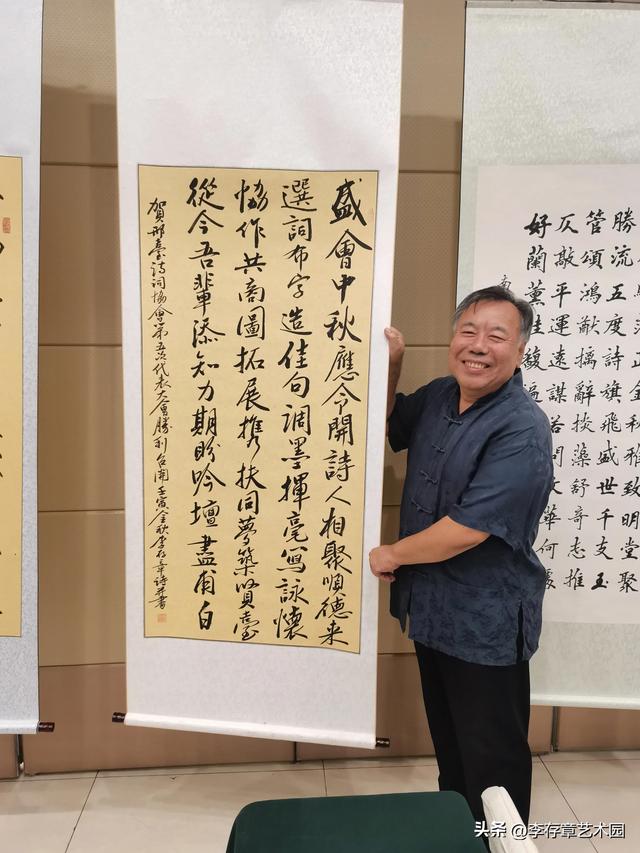 盛會中秋應令開詩人相聚順德来
選詞布字造佳句調墨揮毫寫詠懷
恊作共商圖拓展携扶同夢築賢臺
從今吾輩添知力期盼吟壇盡甫白
賀邢臺詩詞協會第五次代表大會勝利召開壬寅金秋李存章詩并書
正金秋雅致明堂聚
勝流五度詩旗飛盛世千支玉
管頌鴻猷摛辭掞藻舒奇志推
仄敲平運遠謀
好蘭薰桂馥遍若問文華何處
头条 @李存章艺术园